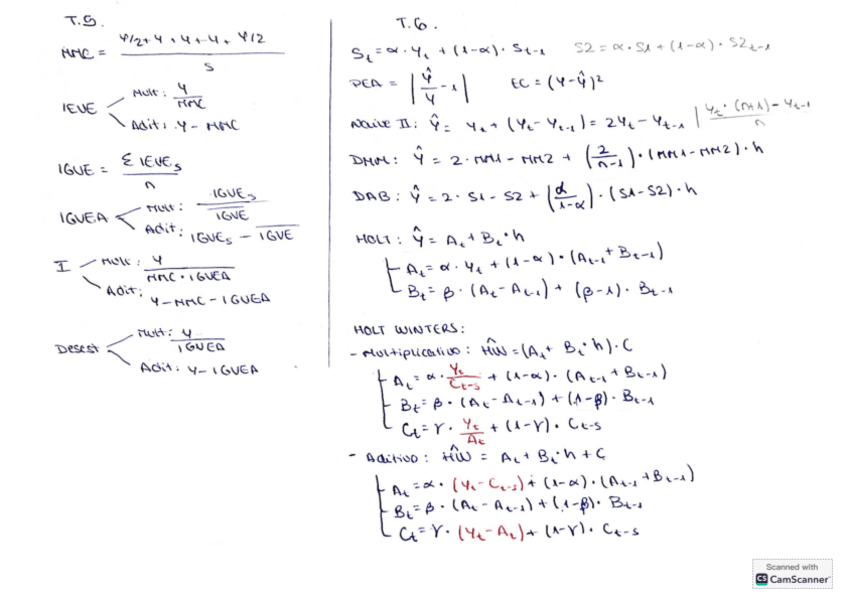 T.5.
MMC = (Y/2 + Y + Y + Y + Y/2) / S
IEVE
Mult: Y / MMC
Adit: Y - MMC
IGVE = Σ IEVE_s / n
IGVEA
Mult: IGVE_s / \overline{IGVE}
Adit: IGVE_s - \overline{IGVE}
I
Mult: Y / (MMC · IGVEA)
Adit: Y - MMC - IGVEA
Desest
Mult: Y / IGVEA
Adit: Y - IGVEA
T.6.
S_t = α · Y_t + (1-α) · S_{t-1} S2 = α · S1 + (1-α) · S2_{t-1}
PEA = | Ŷ/Y - 1 | EC = (Y - Ŷ)²
Naive II: Ŷ = Y_t + (Y_t - Y_{t-1}) = 2Y_t - Y_{t-1} | (Y_t · (n+1) - Y_{t-1}) / n
DMM: Ŷ = 2 · MM1 - MM2 + (2/(n-1)) · (MM1 - MM2) · h
DAB: Ŷ = 2 · S1 - S2 + (α/(1-α)) · (S1 - S2) · h
HOLT: Ŷ = A_t + B_t · h
A_t = α · Y_t + (1-α) · (A_{t-1} + B_{t-1})
B_t = β · (A_t - A_{t-1}) + (β-1) · B_{t-1}
HOLT WINTERS:
- Multiplicativo: ĤW = (A_t + B_t · h) · C
A_t = α · Y_t/C_{t-s} + (1-α) · (A_{t-1} + B_{t-1})
B_t = β · (A_t - A_{t-1}) + (1-β) · B_{t-1}
C_t = γ · Y_t/A_t + (1-γ) · C_{t-s}
- Aditivo: ĤW = A_t + B_t · h + C
A_t = α · (Y_t - C_{t-s}) + (1-α) · (A_{t-1} + B_{t-1})
B_t = β · (A_t - A_{t-1}) + (1-β) · B_{t-1}
C_t = γ · (Y_t - A_t) + (1-γ) · C_{t-s}
Scanned with
CS CamScanner